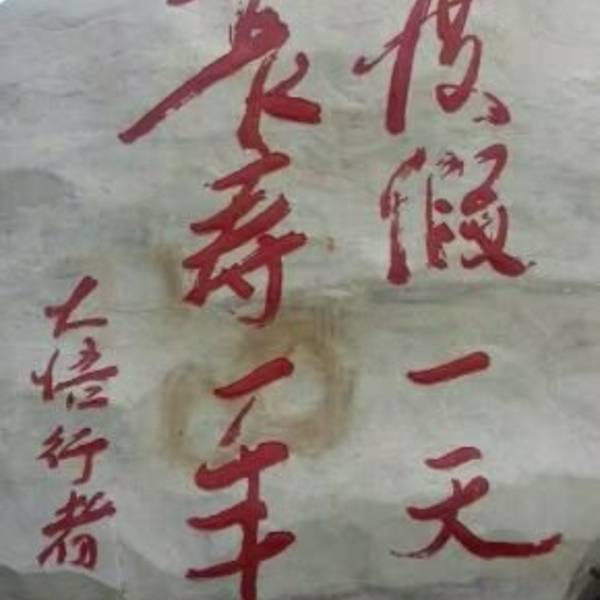 度假一天
长寿一年
大悟行者